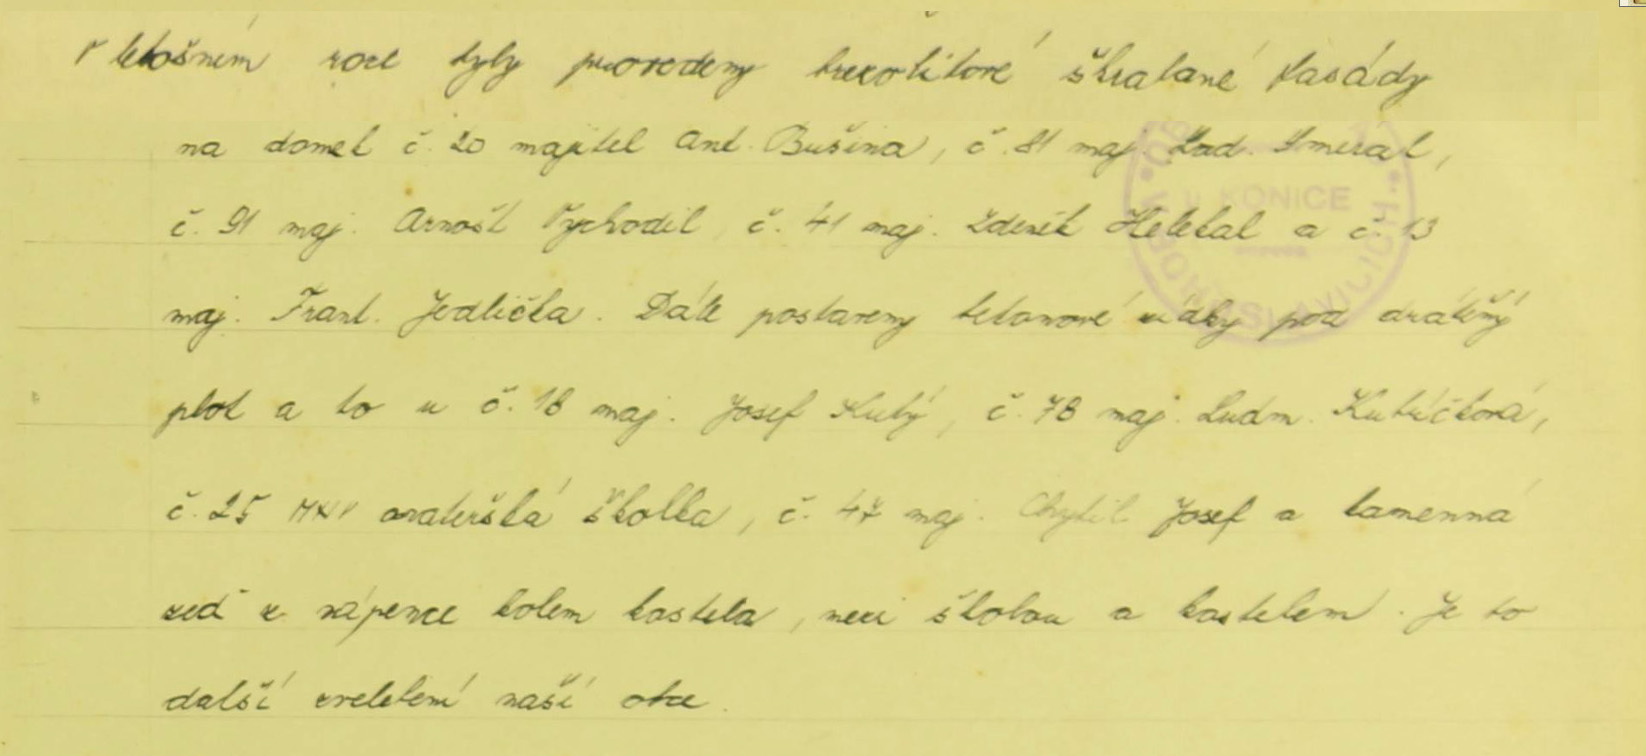 V letošním roce byly provedeny břizolitové škrabané fasády
na domek č. 20 majitel Ant. Bušina, č. 81 maj. Lad. Smékal,
č. 91 maj. Arnošt Vychodil, č. 41 maj. Zdeněk Helekal a č. 13
maj. Frant. Jedlička. Dále postaveny betonové pod drátěný
plot a to u č. 18 maj. Josef Kubý, č. 78 maj. Ludm. Kubíčková,
č. 25 MNV mateřská školka, č. 47 maj. Chytil Josef a kamenná
zeď z vápence kolem kostela, mezi školou a kostelem. Je to
další zvelebení naší obce.
U KONICE